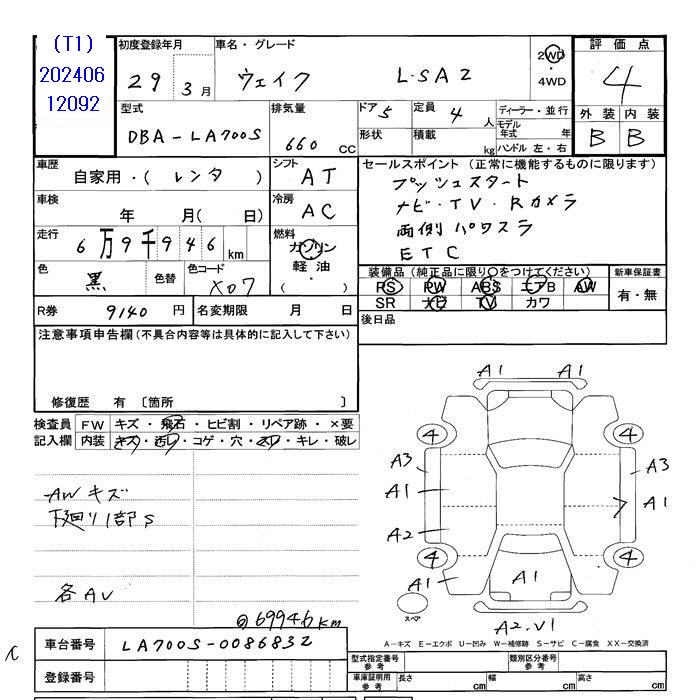 (T1)
202406
12092
初度登録年月
29 3月
車名・グレード
ウェイク L・SA2
2WD
・
4WD
評価点
4
外装 内装
B B
型式
DBA-LA700S
排気量
660 CC
ドア 5
定員 4 人
ディーラー・並行
形状
積載 kg
モデル年式 年
ハンドル 左・右
車歴
自家用・( レンタ )
シフト
AT
車検
年 月( 日)
冷房
AC
走行
6万9千946 km
燃料
ガソリン
軽油・
( )
色
黒
色替
色コード
X07
R券 9140 円
名変期限 月 日
セールスポイント(正常に機能するものに限ります)
プッシュスタート
ナビ・TV・Rカメラ
両側パワスラ
ETC
装備品(純正品に限り○をつけてください)
PS PW ABS エアB AW
SR ナビ TV カワ
新車保証書
有・無
後日品
注意事項申告欄(不具合内容等は具体的に記入して下さい)
修復歴 有 〔箇所 〕
検査員
記入欄
FW キズ・飛石・ヒビ割・リペア跡・×要
内装 キズ・汚レ・コゲ・穴・スレ・キレ・破レ
AWキズ
下廻り1部S
各AU
@69946km
A1 A1
4 4
A3 A3
A1 A1
A2
4 4
A1 A1
スペア
A2・V1
A-キズ E-エクボ U-凹み W-補修跡 S-サビ C-腐食 XX-交換済
車台番号 LA700S-0086832
登録番号
型式指定番号
参考
類別区分番号
参考
車庫証明用
参考
長さ cm
幅 cm
高さ cm